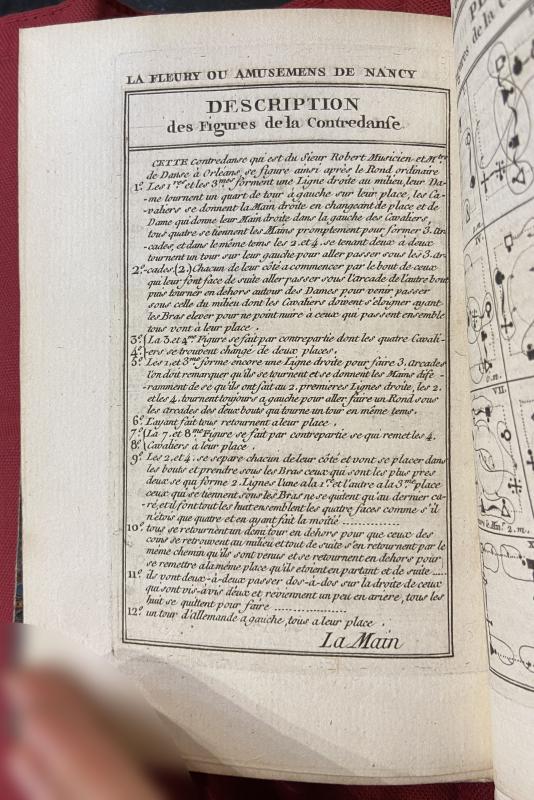 LA FLEURY OU AMUSEMENS DE NANCY
DESCRIPTION
des Figures de la Contredanse
CETTE Contredanse qui est du Sieur Robert Musicien et M.tre
de Danse à Orleans, se figure ainsi après le Rond ordinaire
1.º Les 1.res et les 3.mes forment une Ligne droite au milieu, leur Da-
-me tournent un quart de tour à gauche sur leur place, les Ca-
valiers se donnent la Main droite en changeant de place et de
Dame qui donne leur Main droite dans la gauche des Cavaliers,
tous quatre se tiennent les Mains promptement pour former 3. Ar-
-cades, et dans le même tems les 2. et 4. se tenant deux à deux
tournent un tour sur leur gauche pour aller passer sous les 3. Ar-
2.º -cades. (2.) Chacun de leur côté a commencer par le bout de ceux
qui leur font face de suite aller passer sous l'arcade de l'autre bout
puis tourner en dehors autour des Dames pour venir passer
sous celle du milieu dont les Cavaliers doivent s'éloigner ayant
les Bras elever pour ne point nuire à ceux qui passent ensemble
tous vont à leur place.
3.º La 3. et 4.me Figure se fait par contrepartie dont les quatre Cavali-
4.º ers se trouvent changé de deux places.
5.º Les 1. et 3.me forme encore une Ligne droite pour faire 3. Arcades
l'on doit remarquer qu'ils se tournent et se donnent les Mains dife-
-ramment de se qu'ils ont fait au 2. premieres Lignes droite, les 2.
et les 4. tournent toujours a gauche pour aller faire un Rond sous
les arcades des deux bouts qui tourne un tour en même tems.
6.º L'ayant fait tous retournent a leur place.
7.º La 7. et 8.me Figure se fait par contrepartie se qui remet les 4.
8.º Cavaliers à leur place.
9.º Les 2. et 4. se separe chacun de leur côté et vont se placer dans
les bouts et prendre sous les Bras ceux qui sont les plus pres
deux se qui forme 2. Lignes l'une a la 1.re et l'autre a la 3.me place
ceux qui se tiennent sous les Bras ne se quitent qu'au dernier ca-
-ré, et il font tout les huit ensemblent les quatre faces comme s'il
n'étois que quatre et en ayant fait la moitié ..............
10.º tous se retournent un demi tour en dehors pour que ceux des
coins se retrouvent au milieu et tout de suite s'en retournent par le
meme chemin qu'ils sont venus et se retournent en dehors pour
se remettre a la même place qu'ils étoient en partant et de suite ....
11.º ils vont deux-à-deux passer dos-à-dos sur la droite de ceux
qui sont vis-àvis deux et reviennent un peu en ariere, tous les
huit se quitent pour faire ..................
12.º un tour d'allemande a gauche, tous a leur place.
La Main
VII